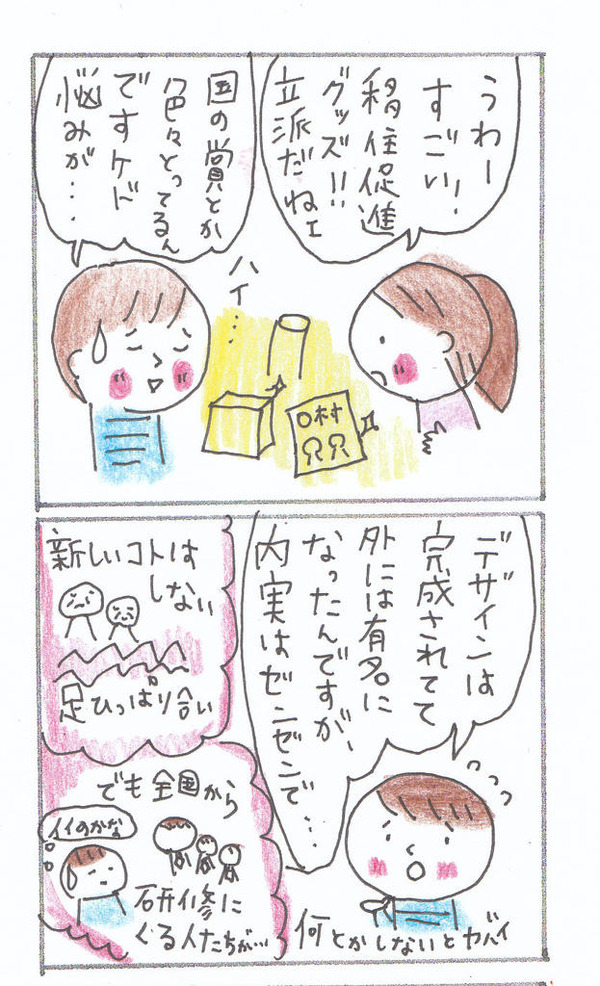 うわー
すごい!
移住促進
グッズ!!
立派だねェ
国の賞とか
色々とってるん
ですケド
悩みが…
ハイ…
○村
デザインは
完成されてて
外には有名に
なったんですが、
内実はゼンゼンで…
新しいコトは
しない
足ひっぱり合い
でも全国から
イイのかな
研修に
くる人たちが…
何とかしないとヤバイ